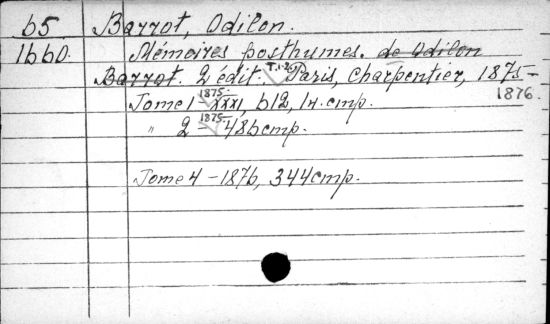 65 Barrot, Odilon.
1660. Mémoires posthumes. de Odilon
Barrot. 2 édit. Paris, Charpentier, 1875-
1876.
Tome 1 - 1875. XXXI, 612, 1 н. стр.
" 2 - 1875 - 486 стр.
Tome 4 - 1876, 344 стр.